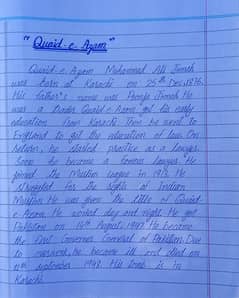 "Quaid-e-Azam"
Quaid-e-Azam Mohammad Ali Jinnah
was born at Karachi on 25th Dec, 1876.
His father's name was Poonja Jinnah. He
was a trader. Quaid-e-Azam got his early
education from Karachi. Then he went to
England to get the education of law. On
return, he started practice as a lawyer.
Soon he become a famous lawyer. He
joined the Muslim League in 1913. He
struggled for the rights of Indian
Muslim. He was given the title of Quaid
-e-Azam. He worked day and night. He got
Pakistan on 14th August, 1947. He became
the first Governor General of Pakistan. Due
to overwork, he become ill and died on
11th september 1948. His tomb is in
Karachi.